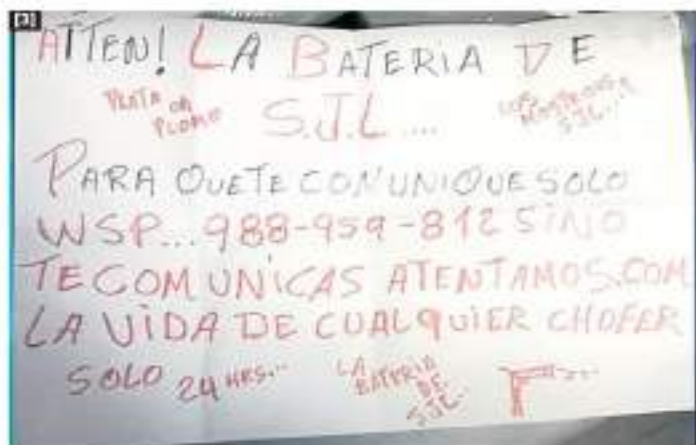 [3]
ATTEN! LA BATERIA DE
PLATA OR
PLOMO
S.J.L....
LOS MOSTROS D
SJL...
PARA QUETE COMUNIQUE SOLO
WSP...988-959-812 SINO
TECOMUNICAS ATENTAMOS.COM
LA VIDA DE CUALQUIER CHOFER
SOLO 24 HRS...
LA
BATERIA
DE
SJL..